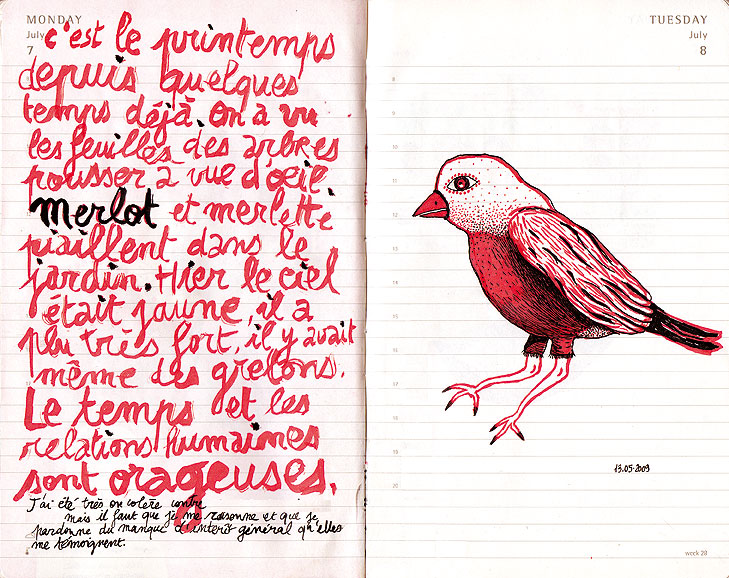 MONDAY
July
7
c'est le printemps
depuis quelques
temps déjà. on a vu
les feuilles des arbres
pousser à vue d'oeil.
merlot et merlette
piaillent dans le
jardin. Hier le ciel
était jaune, il a
plu très fort, il y avait
même des grelons.
Le temps et les
relations humaines
sont orageuses.
J'ai été très en colère contre
mais il faut que je me raisonne et que je
pardonne du manque d'intérêt général qu'elles
me témoignent.
TUESDAY
July
8
8
9
10
11
12
13
14
15
16
17
18
19
20
13.05.2009
week 28